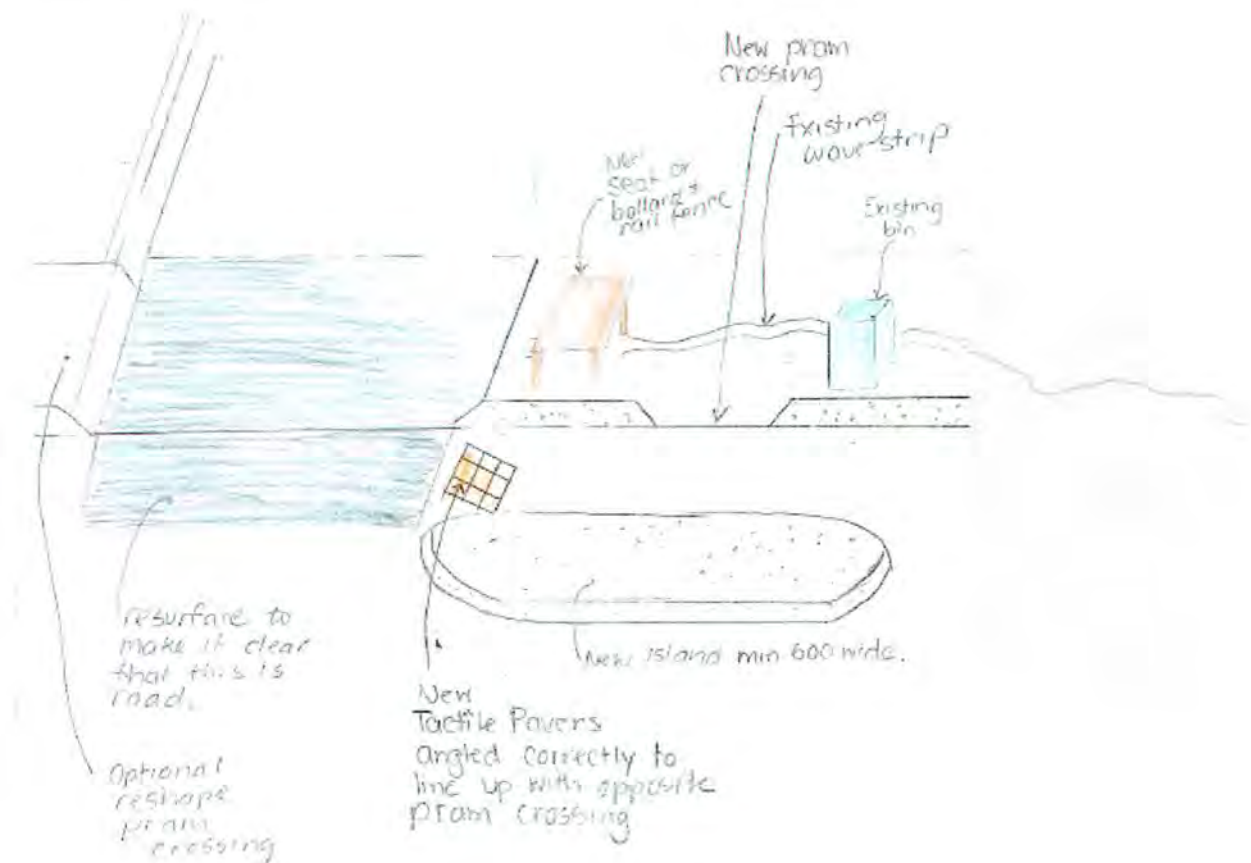 New pram
crossing
Existing
wave strip
New
seat or
bollard +
rail fence
Existing
bin
resurface to
make it clear
that this is
road.
New island min 600 wide.
New
Tactile Pavers
angled correctly to
line up with opposite
pram crossing
Optional
reshape
pram
crossing